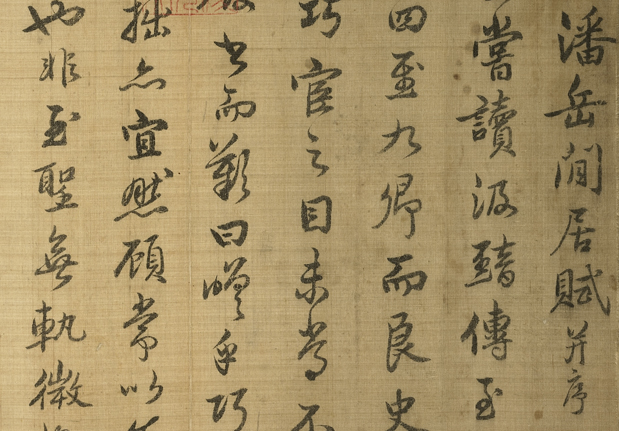 潘岳閒居賦并序
嘗讀汲黯傳至
四至九卿而良史
巧宦之目未嘗不
書而歎曰嗟乎巧
拙亦宜然顧常以
也非至聖無軌微